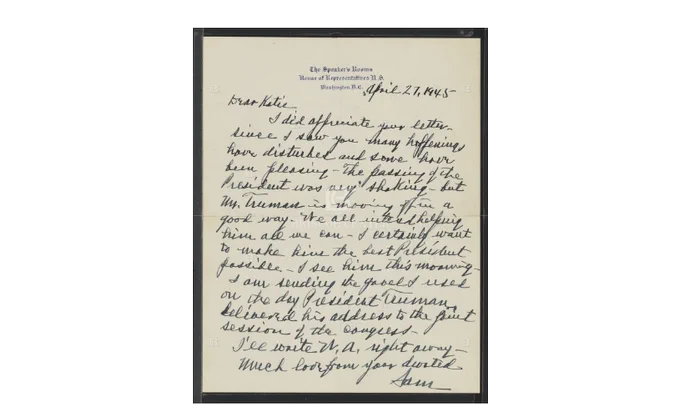 The Speaker's Rooms
House of Representatives U.S.
Washington, D.C.
April 27, 1945
Dear Katie
I did appreciate your letter-
since I saw you many happenings
have disturbed and some have
been pleasing - The passing of the
President was very shaking - but
Mr. Truman is moving off in a
good way. We all intend helping
him all we can - I certainly want
to make him the best President
possible - I see him this morning-
I am sending the gavel I used
on the day President Truman
delivered his address to the joint
session of the Congress-
I'll write W. A. right away-
Much love from your devoted
Sam